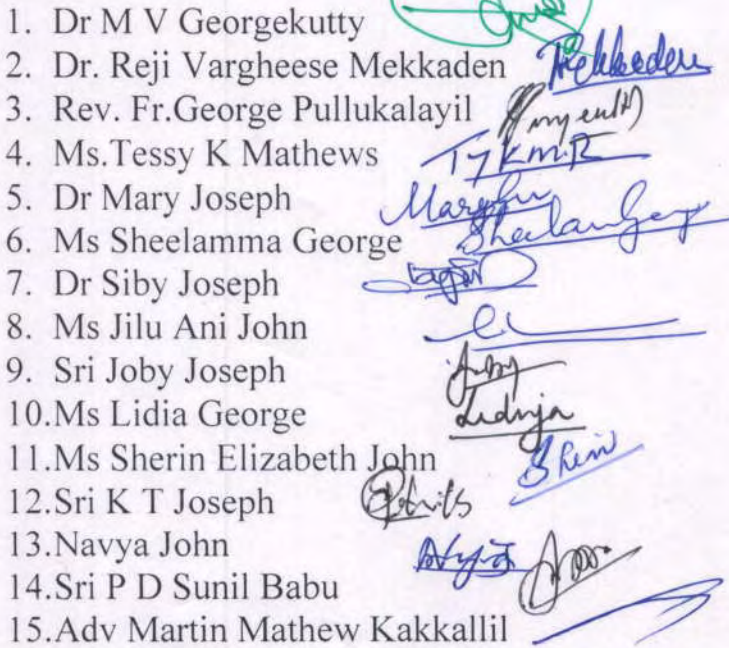 1. Dr M V Georgekutty
2. Dr. Reji Vargheese Mekkaden Mekkaden
3. Rev. Fr.George Pullukalayil
4. Ms.Tessy K Mathews
5. Dr Mary Joseph
6. Ms Sheelamma George
7. Dr Siby Joseph
8. Ms Jilu Ani John
9. Sri Joby Joseph
10.Ms Lidia George
11.Ms Sherin Elizabeth John
12.Sri K T Joseph
13.Navya John
14.Sri P D Sunil Babu
15.Adv Martin Mathew Kakkallil